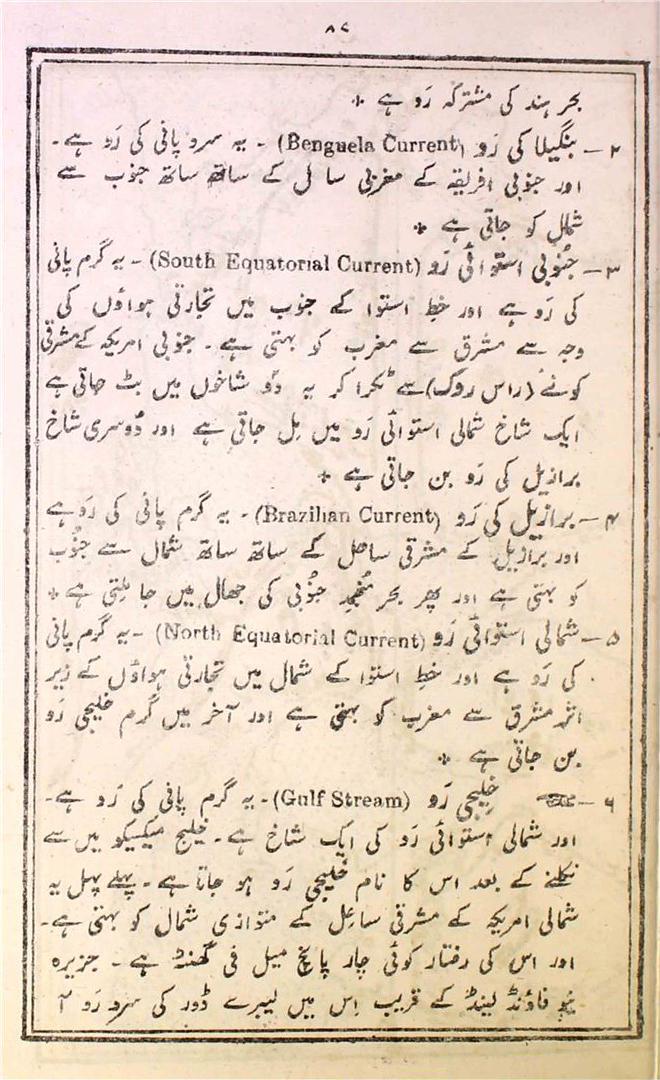 ۸۷
بحر ہند کی مشترکہ رَو ہے *
۲ – بنگیلا کی رَو (Benguela Current) - یہ سرد پانی کی رَو ہے۔
اور جنوبی افریقہ کے مغربی ساحل کے ساتھ ساتھ جنوب سے
شمال کو جاتی ہے *
۳ – جنُوبی استوائی رَو (South Equatorial Current) - یہ گرم پانی
کی رَو ہے اور خط استوا کے جنوب میں تجارتی ہواؤں کی
وجہ سے مشرق سے مغرب کو بہتی ہے۔ جنوبی امریکہ کے مشرقی
کونے (راس روک) سے ٹکرا کر یہ دو شاخوں میں بٹ جاتی ہے
ایک شاخ شمالی استوائی رَو میں مِل جاتی ہے اور دُوسری شاخ
برازیل کی رَو بن جاتی ہے *
۴ – برازیل کی رَو (Brazilian Current) - یہ گرم پانی کی رَو ہے
اور برازیل کے مشرقی ساحل کے ساتھ ساتھ شمال سے جنُوب
کو بہتی ہے اور پھر بحر مُنجمد جنُوبی کی جھال میں جا مِلتی ہے *
۵ – شمالی استوائی رَو (North Equatorial Current) - یہ گرم پانی
کی رَو ہے اور خط استوا کے شمال میں تجارتی ہواؤں کے زیر
اثر مشرق سے مغرب کو بہتی ہے اور آخر میں گرم خلیجی رَو
بن جاتی ہے *
۶ – خلیجی رَو (Gulf Stream) - یہ گرم پانی کی رَو ہے۔
اور شمالی استوائی رَو کی ایک شاخ ہے۔ خلیج میکسیکو میں سے
نکلنے کے بعد اس کا نام خلیجی رَو ہو جاتا ہے۔ پہلے پہل یہ
شمالی امریکہ کے مشرقی ساحل کے متوازی شمال کو بہتی ہے۔
اور اس کی رفتار کوئی چار پانچ میل فی گھنٹہ ہے۔ جزیرہ
نیو فاؤنڈ لینڈ کے قریب اِس میں لیبرے ڈور کی سرد رَو آ